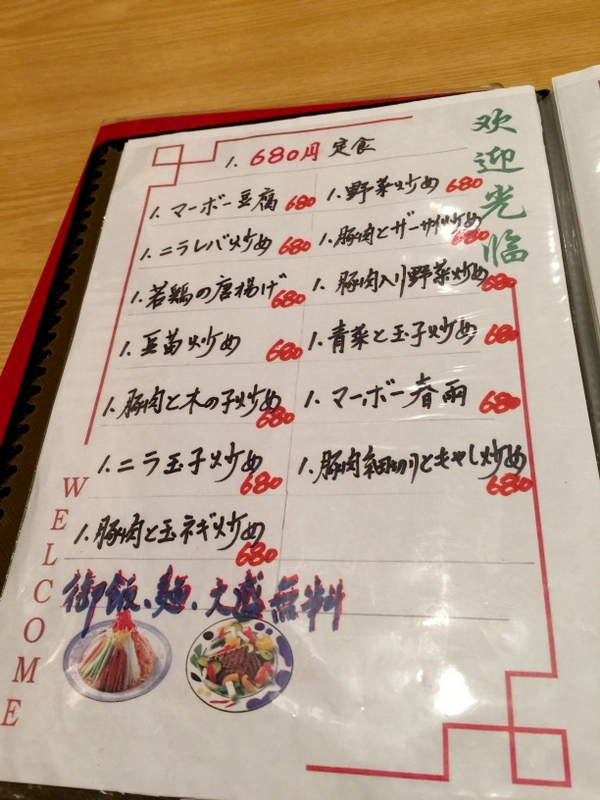 1. 680円 定食
1. マーボー豆腐 680
1. 野菜炒め 680
1. ニラレバ炒め 680
1. 豚肉とザーサイ炒め 680
1. 若鶏の唐揚げ 680
1. 豚肉入り野菜炒め 680
1. 豆苗炒め 680
1. 青菜と玉子炒め 680
1. 豚肉と木の子炒め 680
1. マーボー春雨 680
1. ニラ玉子炒め 680
1. 豚肉細切りともやし炒め 680
1. 豚肉と玉ネギ炒め 680
御飯、麺、大盛無料
欢迎光临
WELCOME